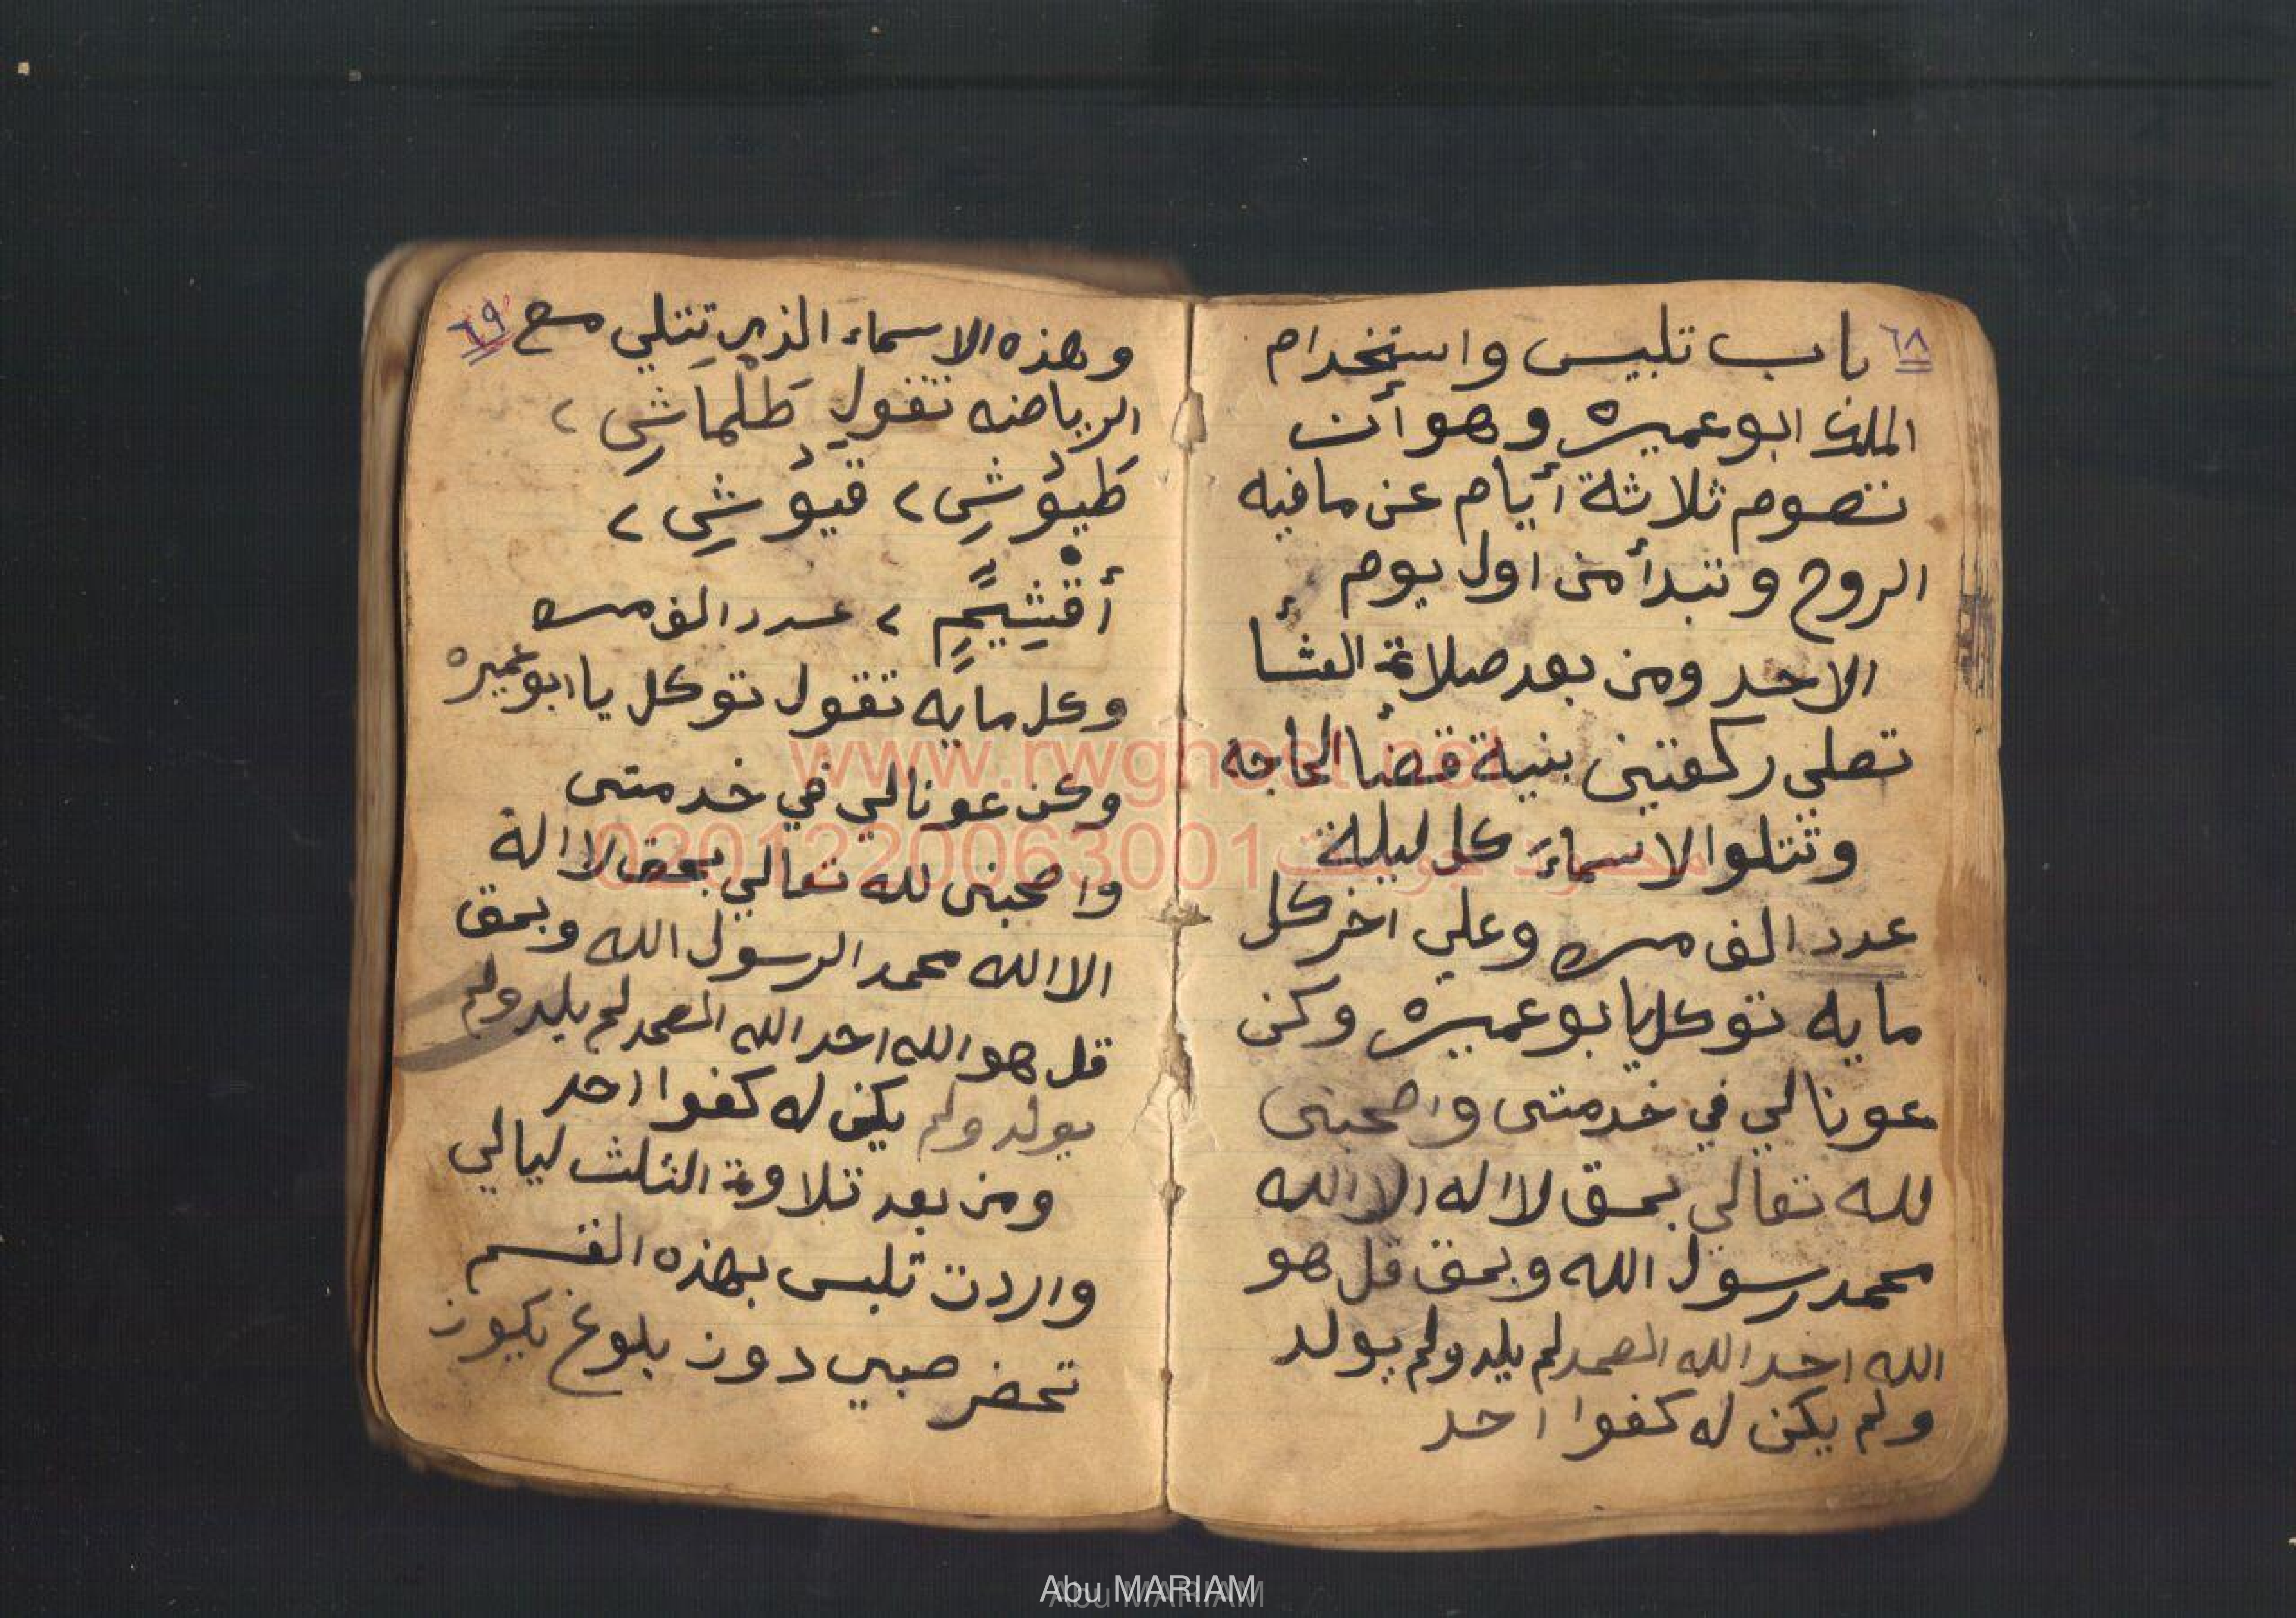 ٦٨
باب تلبيس واستخدام
الملك ابوعميره وهو أن
تصوم ثلاثة أيام عن مافيه
الروح وتبدأ من اول يوم
الاحد ومن بعد صلاة العشأ
تصلي ركعتين بنية قضأ الحاجه
وتتلوا الاسماء كل ليلة
عدد الف مره وعلي اخر كل
مايه توكل يا بوعميره وكن
عونا لي في خدمتى واصحبنى
لله تعالى بحق لا اله الا الله
محمد رسول الله وبحق قل هو
الله احد الله الصمد لم يلد ولم يولد
ولم يكن له كفوا احد
٦٩
وهذه الاسماء الذي تتلي مع
الرياضه تقول طَلْماشِي ٢
طَيوُشِي ٢ قيوُشِي ٢
أقْشِيمٍ ٢ عدد الف مره
وكل مايه تقول توكل يا ابوعميره
وكن عونا لي في خدمتى
واصحبنى لله تعالي بحق لا اله
الا الله محمد الرسول الله وبحق
قل هو الله احد الله الصمد لم يلد ولم
يولد ولم يكن له كفوا احد
ومن بعد تلاوة الثلث ليالي
واردت تلبس بهذه القسم
تحضر صبي دون بلوغ يكون
www.rwghost.net
0201220063001
Abu MARIAM